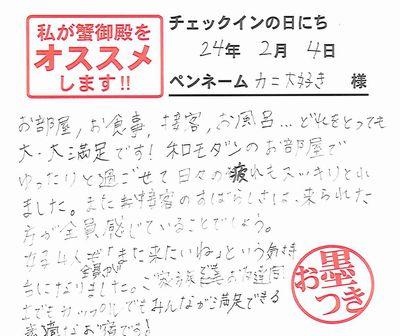 私が蟹御殿を
オススメ
します!!
チェックインの日にち
24年 2月 4日
ペンネーム カニ大好き 様
お部屋,お食事,接客,お風呂…どれをとっても
大・大満足です!和モダンのお部屋で
ゆったりと過ごせて日々の疲れもスッキリとれ
ました。また 接客のすばらしさは、来られた
方が全員感じていることでしょう。
女子4人 全員が「また来たいね」という気持
ちになりました。ご家族 お友達同
士でもカップルでもみんなが満足できる
素適なお宿です!
お墨つき